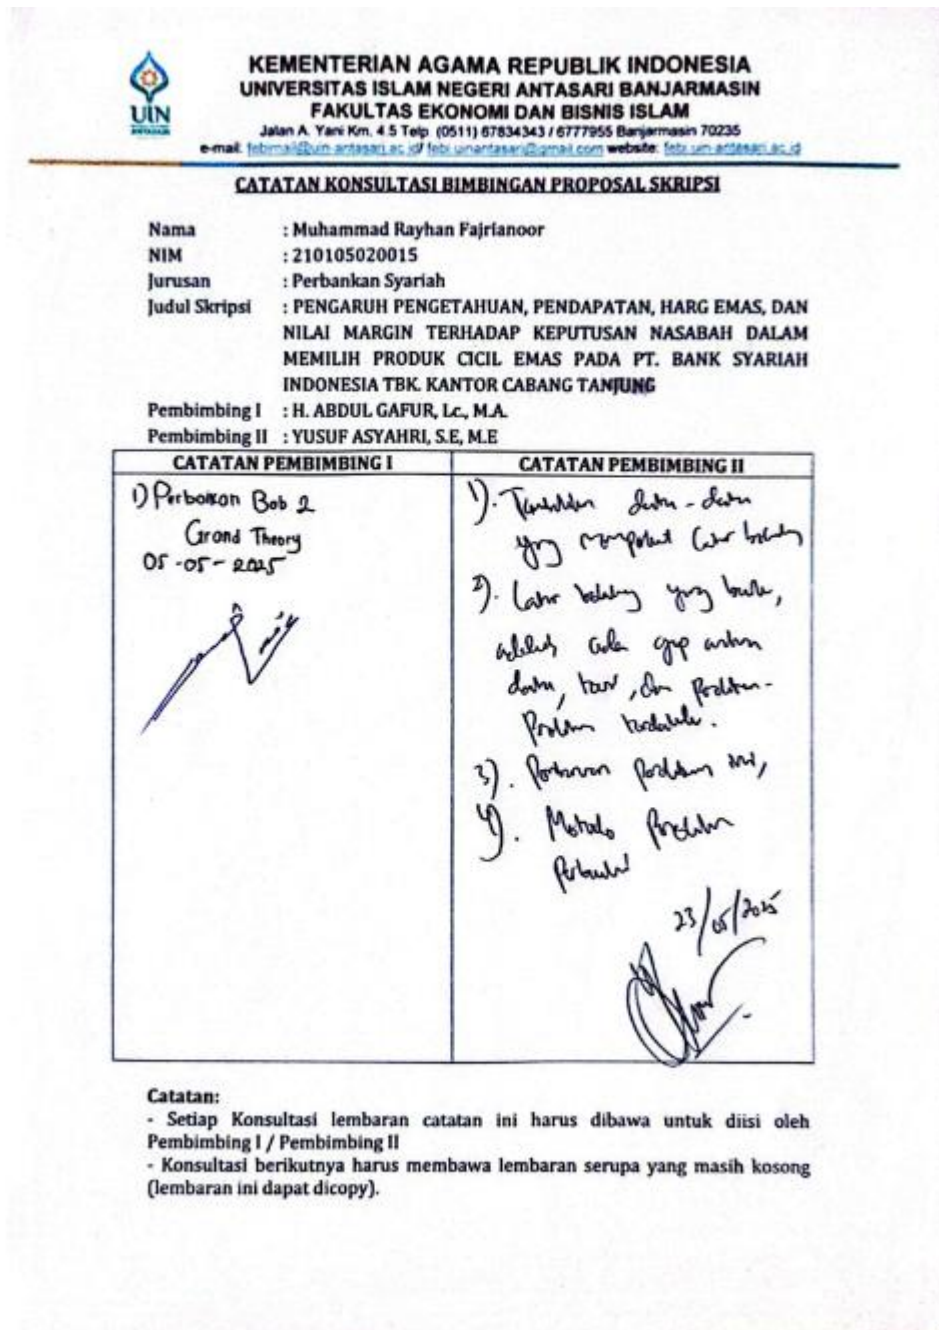 UIN
ANTASARI
KEMENTERIAN AGAMA REPUBLIK INDONESIA
UNIVERSITAS ISLAM NEGERI ANTASARI BANJARMASIN
FAKULTAS EKONOMI DAN BISNIS ISLAM
Jalan A. Yani Km. 4.5 Telp. (0511) 67834343 / 6777955 Banjarmasin 70235
e-mail: febimail@uin-antasari.ac.id/ febi.uinantasari@gmail.com website: febi.uin-antasari.ac.id
CATATAN KONSULTASI BIMBINGAN PROPOSAL SKRIPSI
Nama : Muhammad Rayhan Fajrianoor
NIM : 210105020015
Jurusan : Perbankan Syariah
Judul Skripsi : PENGARUH PENGETAHUAN, PENDAPATAN, HARG EMAS, DAN
NILAI MARGIN TERHADAP KEPUTUSAN NASABAH DALAM
MEMILIH PRODUK CICIL EMAS PADA PT. BANK SYARIAH
INDONESIA TBK. KANTOR CABANG TANJUNG
Pembimbing I : H. ABDUL GAFUR, Lc., M.A.
Pembimbing II : YUSUF ASYAHRI, S.E, M.E
CATATAN PEMBIMBING I
1) Perbaikan Bab 2
Grand Theory
05-05-2025
CATATAN PEMBIMBING II
1). data-data
yang latar belakang
2). Latar belakang yang baik,
adalah ada gap antara
data, teori, dan penelitian-
penelitian terdahulu.
3). penelitian ini,
4). Metode Penelitian
Perbaiki
23/05/2025
Catatan:
- Setiap Konsultasi lembaran catatan ini harus dibawa untuk diisi oleh
Pembimbing I / Pembimbing II
- Konsultasi berikutnya harus membawa lembaran serupa yang masih kosong
(lembaran ini dapat dicopy).